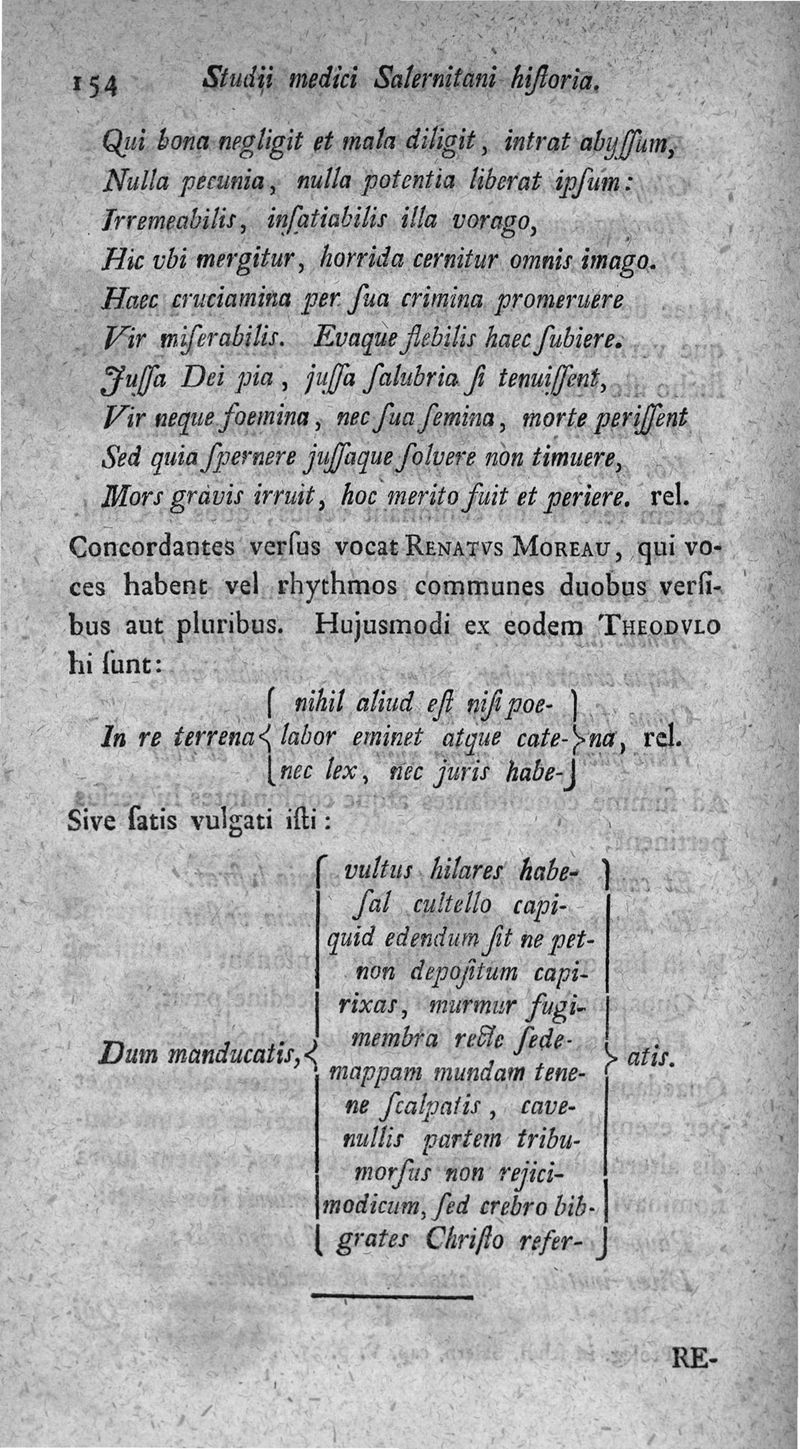 154 Studii medici Salernitani hiſtoria.
Qui bona negligit et mala diligit, intrat abyſſum,
Nulla pecunia, nulla potentia liberat ipſum:
Irremeabilis, inſatiabilis illa vorago,
Hic vbi mergitur, horrida cernitur omnis imago.
Haec cruciamina per ſua crimina promeruere
Vir miſerabilis. Evaque flebilis haec ſubiere.
Juſſa Dei pia, juſſa ſalubria ſi tenuiſſent,
Vir neque foemina, nec ſua ſemina, morte periſſent
Sed quia ſpernere juſſaque ſolvere non timuere,
Mors gravis irruit, hoc merito fuit et periere. rel.
Concordantes verſus vocat RENATVS MOREAU, qui vo-
ces habent vel rhythmos communes duobus verſi-
bus aut pluribus. Hujusmodi ex eodem THEODVLO
hi ſunt:
nihil aliud eſt niſi poe-
In re terrena labor eminet atque cate- na, rel.
nec lex, nec juris habe-
Sive ſatis vulgati iſti:
vultus hilares habe-
ſal cultello capi-
quid edendum ſit ne pet-
non depoſitum capi-
rixas, murmur fugi-
membra recte ſede-
Dum manducatis, mappam mundam tene- atis.
ne ſcalpatis, cave-
nullis partem tribu-
morſus non rejici-
modicum, ſed crebro bib-
grates Chriſto refer-
RE-